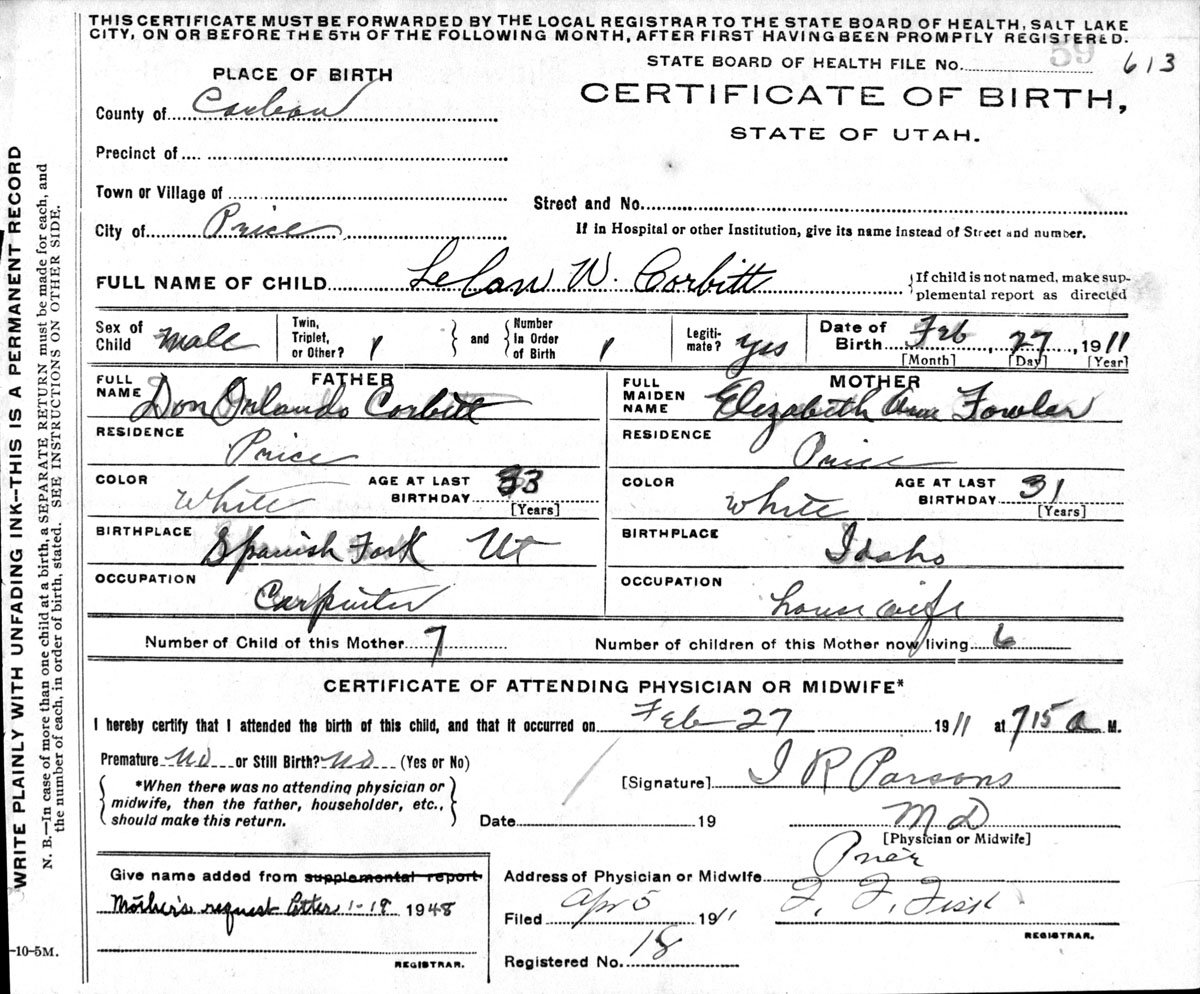 THIS CERTIFICATE MUST BE FORWARDED BY THE LOCAL REGISTRAR TO THE STATE BOARD OF HEALTH, SALT LAKE
CITY, ON OR BEFORE THE 5TH OF THE FOLLOWING MONTH, AFTER FIRST HAVING BEEN PROMPTLY REGISTERED.
STATE BOARD OF HEALTH FILE No. 59 613
PLACE OF BIRTH
CERTIFICATE OF BIRTH,
STATE OF UTAH.
County of Carbon
Precinct of
Town or Village of
Street and No.
City of Price
If in Hospital or other Institution, give its name instead of Street and number.
FULL NAME OF CHILD LeLan W. Corbitt {If child is not named, make sup-
plemental report as directed
Sex of Child Male Twin, Triplet, or Other? 1 } and { Number in Order of Birth 1 Legiti-mate? yes Date of Birth Feb, 27, 1911
[Month] [Day] [Year]
FATHER
FULL NAME Don Orlando Corbitt
MOTHER
FULL MAIDEN NAME Elizabeth Fowler
RESIDENCE Price
RESIDENCE Price
COLOR White AGE AT LAST BIRTHDAY 33 [Years]
COLOR White AGE AT LAST BIRTHDAY 31 [Years]
BIRTHPLACE Spanish Fork Ut
BIRTHPLACE Idaho
OCCUPATION Carpinter
OCCUPATION housewife
Number of Child of this Mother 7 Number of children of this Mother now living 6
CERTIFICATE OF ATTENDING PHYSICIAN OR MIDWIFE*
I hereby certify that I attended the birth of this child, and that it occurred on Feb 27 1911 at 715 a M.
Premature No or Still Birth? No (Yes or No)
{ *When there was no attending physician or
midwife, then the father, householder, etc.,
should make this return. }
[Signature] I R Parsons
Date 19 M D
[Physician or Midwife]
Give name added from supplemental report
Mother's request Letter 1-19 1948
REGISTRAR.
Address of Physician or Midwife Price
Filed Apr 5 1911 F. F. Fisk
REGISTRAR.
Registered No. 18
WRITE PLAINLY WITH UNFADING INK--THIS IS A PERMANENT RECORD
N. B.—In case of more than one child at a birth, a SEPARATE RETURN must be made for each, and
the number of each, in order of birth, stated. SEE INSTRUCTIONS ON OTHER SIDE.
-10-5M.